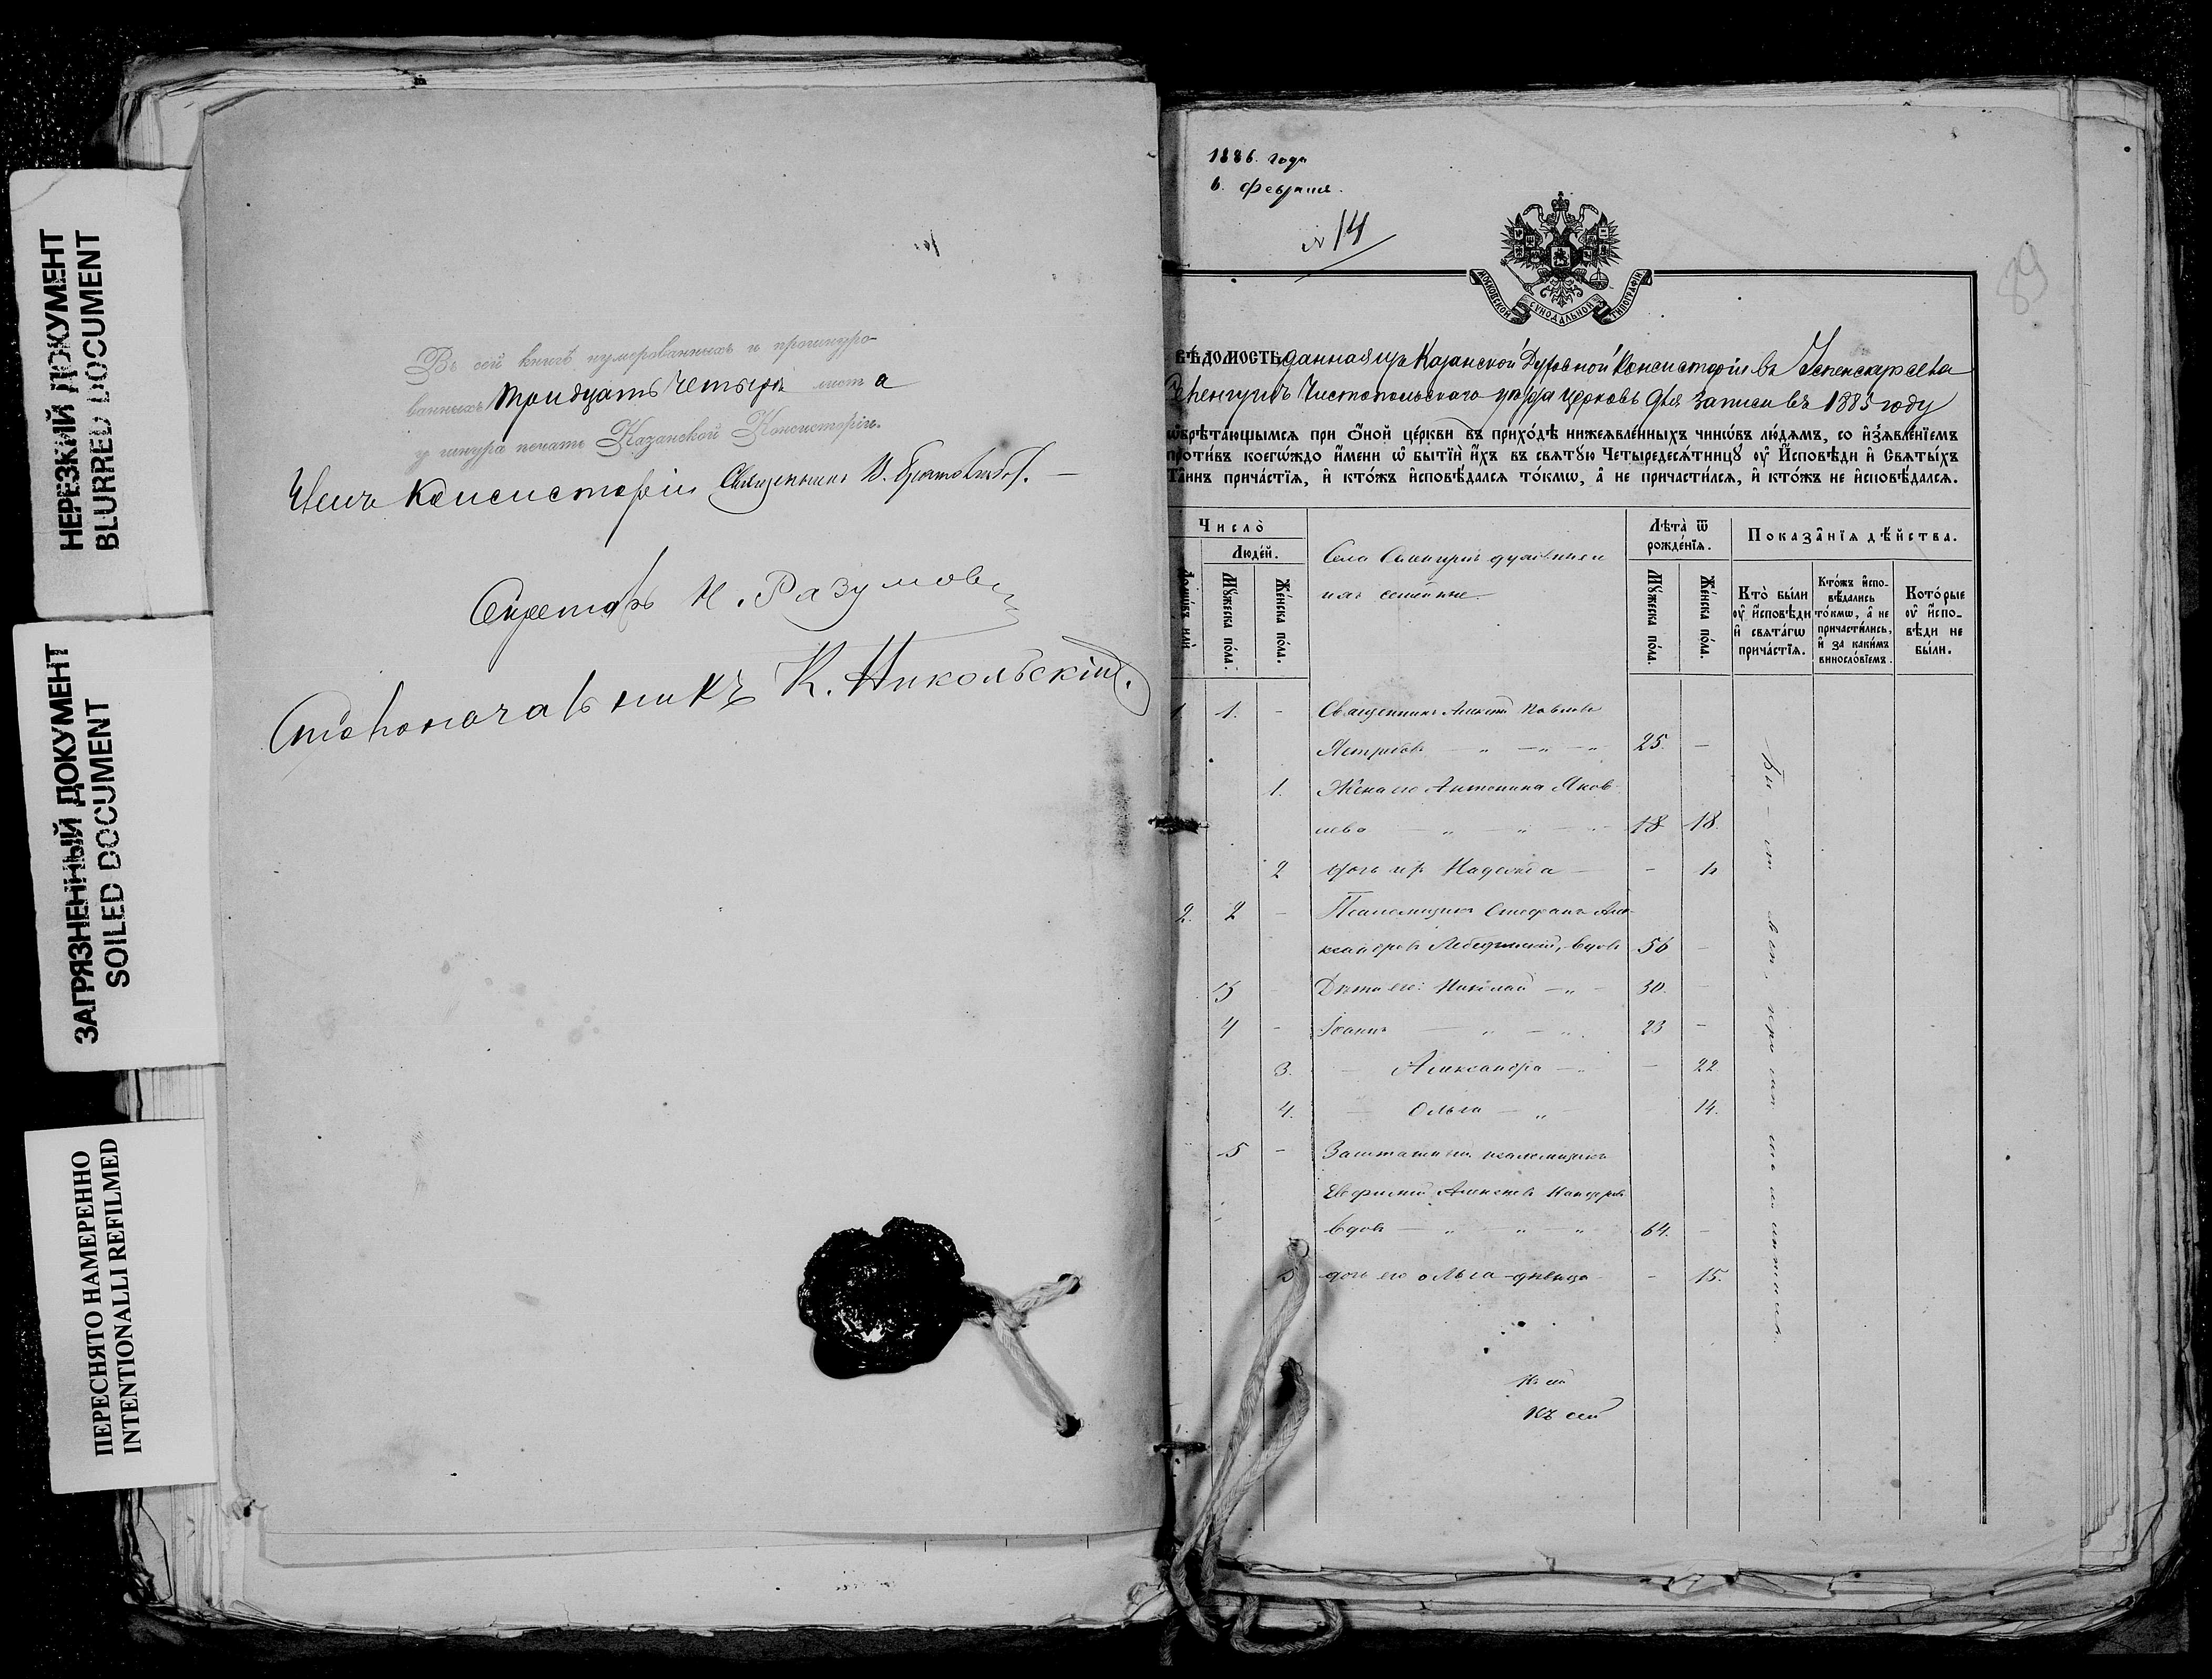 НЕРЕЗКИЙ ДОКУМЕНТ
BLURRED DOCUMENT
ЗАГРЯЗНЕННЫЙ ДОКУМЕНТ
SOILED DOCUMENT
ПЕРЕСНЯТО НАМЕРЕННО
INTENTIONALLI REFILMED
Въ сей книгѣ нумерованныхъ и прошнуро-
ванныхъ тридцать четыре листа
у шнура печать Казанской Консисторіи.
Членъ Консисторіи Священникъ В.
Секретарь Н. Разумов
Столоначальникъ К. Никольскій.
1886. года
6. февраля.
№ 14
89
МОСКОВСКОЙ СѴНОДАЛЬНОЙ ТИПОГРАФІИ
ВѢДОМОСТЬ данная изъ Казанской Духовной Консисторіи въ Успенскую села
Чистопольскаго уѣзда церковь для записи въ 1885 году
ѡбрѣта́ющымсѧ при ѻ҆́ной це́ркви въ прихо́дѣ нижеѧвле́нныхъ чинѡ́въ лю́демъ, со и҆з̾ѧвле́нїемъ
про́тивъ коегѡ́ждо и҆́мени ѡ҆ бытїѝ и҆́хъ въ свѧту́ю Четыредесѧ́тницꙋ ᲂу҆ И҆́сповѣди и҆ Свѧты́хъ
Та́инъ прича́стїѧ, и҆ кто́жъ и҆сповѣ́далсѧ то́кмѡ, а҆ не причасти́лсѧ, и҆ кто́жъ не и҆сповѣ́далсѧ.
Число̀
Люде́й.
Мꙋ́жеска по́ла.
Же́нска по́ла.
Села духовные и
ихъ семейные
Лѣта̀ ѿ рожде́нїѧ.
Мꙋ́жеска по́ла.
Же́нска по́ла.
Показа̑нїѧ дѣ́йства.
Кто̀ бы́ли ᲂу҆ и҆́сповѣди и҆ свѧта́гѡ прича́стїѧ.
Кто́жъ и҆спо-вѣ́дались то́кмѡ, а҆ не причасти́лись, и҆ за каки́мъ винослѡ́вїемъ.
Кото́рые ᲂу҆ и҆́спо-вѣди не бы́ли.
1 1. - Священникъ Алексѣй Павловъ
Ястребовъ 25. -
1. Жена его Антонина Яков-
лева 18 18.
2 дочь ихъ Надежда - -
2. 2 - Псаломщикъ Стефанъ Але-
ксандровъ вдовъ 56 -
3 Дѣти его: Николай 30. -
4 - Іоаннъ 23 -
3. Александра - 22
4. Ольга 14.
5 - Заштатный псаломщикъ
Алексѣевъ
вдовъ 64. -
5 дочь его Ольга - дѣвица - 15.
Къ сей
Къ сей